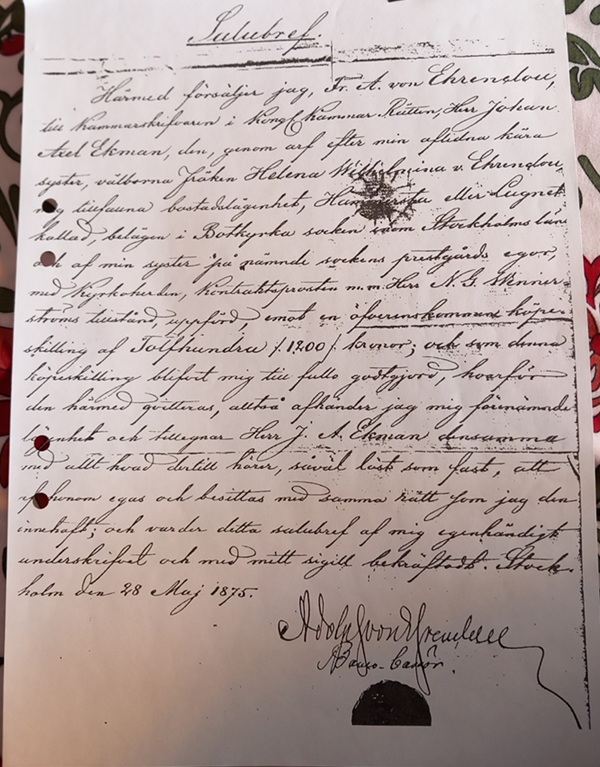 Salubref.
Härmed försäljer jag, Fr. A. von Ehrendou,
till Kammarskrifvaren i Kongl. Kammar Rätten, Herr Johan
Axel Ekman, den, genom arf efter min aflidna kära
syster, välborna Fröken Helena Wilhelmina v. Ehrendou,
mig tillfallna bostadslägenhet, eller Lugnet
kallad, belägen i Botkyrka socken inom Stockholms län
och af min syster på nämnde sockens prestgårds egor,
med Kyrkoherden, Kontraktsprosten m.m. Herr N. G.
ströms tillstånd, uppförd, emot en öfverenskommen köpe-
skilling af Tolfhundra /. 1200 /. kronor; och som denna
köpeskilling blifvit mig till fullo godtgjord, hvarför
den härmed qvitteras, alltså afhänder jag mig förenämnde
lägenhet och tillegnar Herr J. A. Ekman densamma
med allt hvad dertill hörer, såväl löst som fast, att
af honom egas och besittas med samma rätt som jag den
innehaft; och varder detta salubref af mig egenhändigt
underskrifvet och med mitt sigill bekräftadt. Stock-
holm den 28 Maj 1875.
Adolf von